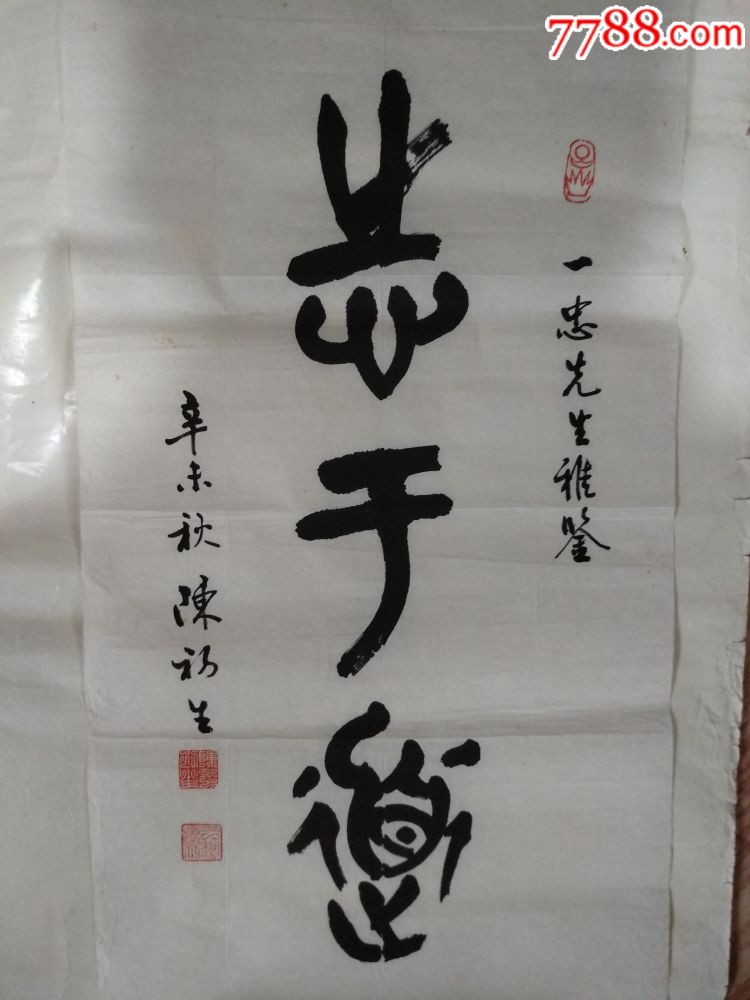 7788.com
一忠先生雅鉴
志于道
辛未秋 陳初生